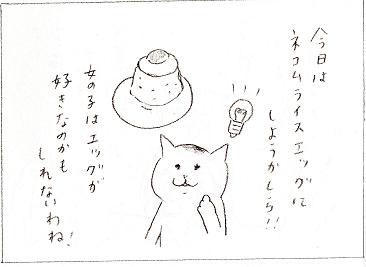 今日は
ネコムライスエッグに
しようかしら!!
女の子はエッグが
好きなのかも
しれないわね!